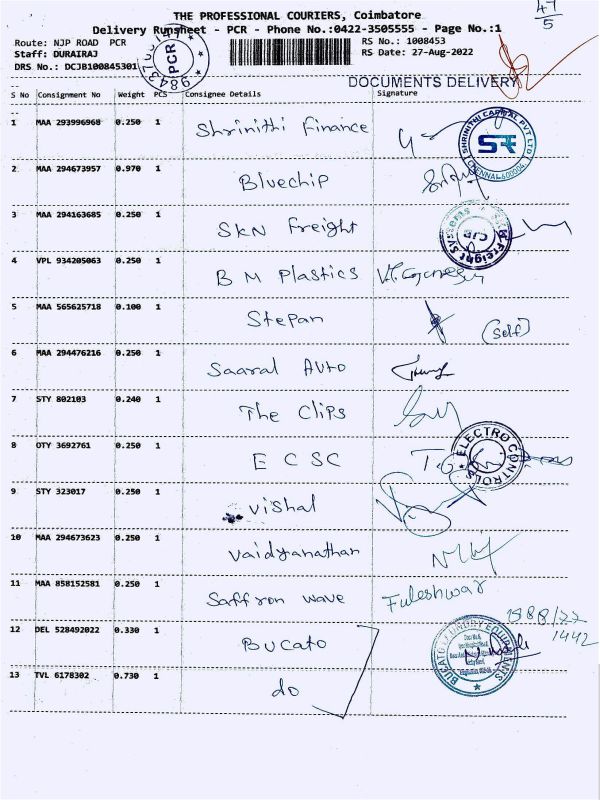 47
5
THE PROFESSIONAL COURIERS, Coimbatore
Delivery Runsheet - PCR - Phone No.:0422-3505555 - Page No.:1
Route: NJP ROAD PCR
RS No.: 1008453
Staff: DURAIRAJ
RS Date: 27-Aug-2022
DRS No.: DCJB100845301
PCR
DOCUMENTS DELIVERY
S No Consignment No Weight PCS Consignee Details Signature
1 MAA 293996968 0.250 1 Shrinithi Finance
SHRINITHI CAPITAL PVT LTD
CHENNAI-600004
2 MAA 294673957 0.970 1 Bluechip
3 MAA 294163685 0.250 1 SKN Freight
4 VPL 934205063 0.250 1 B M Plastics
5 MAA 565625718 0.100 1 Stepan (Self)
6 MAA 294476216 0.250 1 Saaral Auto
7 STY 802103 0.240 1 The Clips
8 OTY 3692761 0.250 1 E C S C
ELECTRO CONTROLS
9 STY 323017 0.250 1 Vishal
10 MAA 294673623 0.250 1 Vaidyanathan
11 MAA 858152581 0.250 1 Saffron wave Fuleshwar
12 DEL 528492022 0.330 1 Bucato
1442
BUCATO LAUNDRY EQUIPMENTS
13 TVL 6178302 0.730 1 do